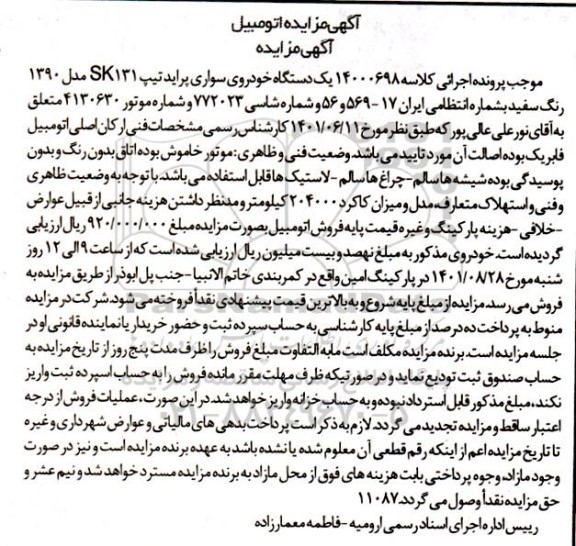 آگهی مزایده اتومبیل
آگهی مزایده
موجب پرونده اجرائی کلاسه ۱۴۰۰۰۶۹۸ یک دستگاه خودروی سواری پراید تیپ SK۱۳۱ مدل ۱۳۹۰
رنگ سفید بشماره انتظامی ایران ۱۷ - ۵۶۹و۵۶ و شماره شاسی ۷۷۲۰۲۳ و شماره موتور ۴۱۳۰۶۳۰ متعلق
به آقای نورعلی عالی پور که طبق نظر مورخ ۱۴۰۱/۰۶/۱۱ کارشناس رسمی مشخصات فنی ارکان اصلی اتومبیل
فابریک بوده اصالت آن مورد تایید می باشد. وضعیت فنی و ظاهری: موتور خاموش بوده اتاق بدون رنگ و بدون
پوسیدگی بوده شیشه ها سالم -چراغ ها سالم -لاستیک ها قابل استفاده می باشد. با توجه به وضعیت ظاهری
و فنی و استهلاک متعارف مدل و میزان کاکرد ۲۰۴۰۰۰ کیلومتر و مدنظر داشتن هزینه جانبی از قبیل عوارض
-خلافی -هزینه پارکینگ و غیره قیمت پایه فروش اتومبیل بصورت مزایده مبلغ ۹۲۰/۰۰۰/۰۰۰ ریال ارزیابی
گردیده است. خودروی مذکور به مبلغ نهصد و بیست میلیون ریال ارزیابی شده است که از ساعت ۹ الی ۱۲ روز
شنبه مورخ ۱۴۰۱/۰۸/۲۸ در پارکینگ امین واقع در کمربندی خاتم الانبیا -جنب پل ابوذر از طریق مزایده به
فروش می رسد. مزایده از مبلغ پایه شروع و به بالاترین قیمت پیشنهادی نقداً فروخته می شود. شرکت در مزایده
منوط به پرداخت ده درصد از مبلغ پایه کارشناسی به حساب سپرده ثبت و حضور خریدار یا نماینده قانونی او در
جلسه مزایده است. برنده مزایده مکلف است مابه التفاوت مبلغ فروش را ظرف مدت پنج روز از تاریخ مزایده به
حساب صندوق ثبت تودیع نماید و در صورتیکه ظرف مهلت مقرر مانده فروش را به حساب اسپرده ثبت واریز
نکند، مبلغ مذکور قابل استرداد نبوده و به حساب خزانه واریز خواهد شد. در این صورت، عملیات فروش از درجه
اعتبار ساقط و مزایده تجدید می گردد. لازم به ذکر است پرداخت بدهی های مالیاتی و عوارض شهرداری و غیره
تا تاریخ مزایده اعم از اینکه رقم قطعی آن معلوم شده یا نشده باشد به عهده برنده مزایده است و نیز در صورت
وجود مازاد، وجوه پرداختی بابت هزینه های فوق از محل مازاد به برنده مزایده مسترد خواهد شد و نیم عشر و
حق مزایده نقداً وصول می گردد. ۱۱۰۸۷
رییس اداره اجرای اسناد رسمی ارومیه -فاطمه معمارزاده